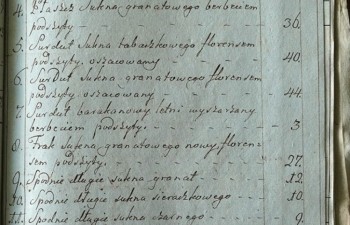 4. Płaszcz Sukna granatowego berberiem
podszyty - - - - 36.
5. Surdut Sukna tabaczkowego florensem
podszyty, oszacowany - - - 40.
6. Surdut Sukna granatowego florensem
podszyty oszacowany - - - 44.
7. Surdut barakanowy letni wyszarzany
berberiem podszyty. - - - 3
8. Frak sukna granatowego nowy, floren-
sem podszyty. - - - 27.
9. Spodnie długie sukna granat - - 12.
10. Spodnie długie sukna sieraczkowego - - 10.
11. Spodnie długie sukna czarnego - - 9.